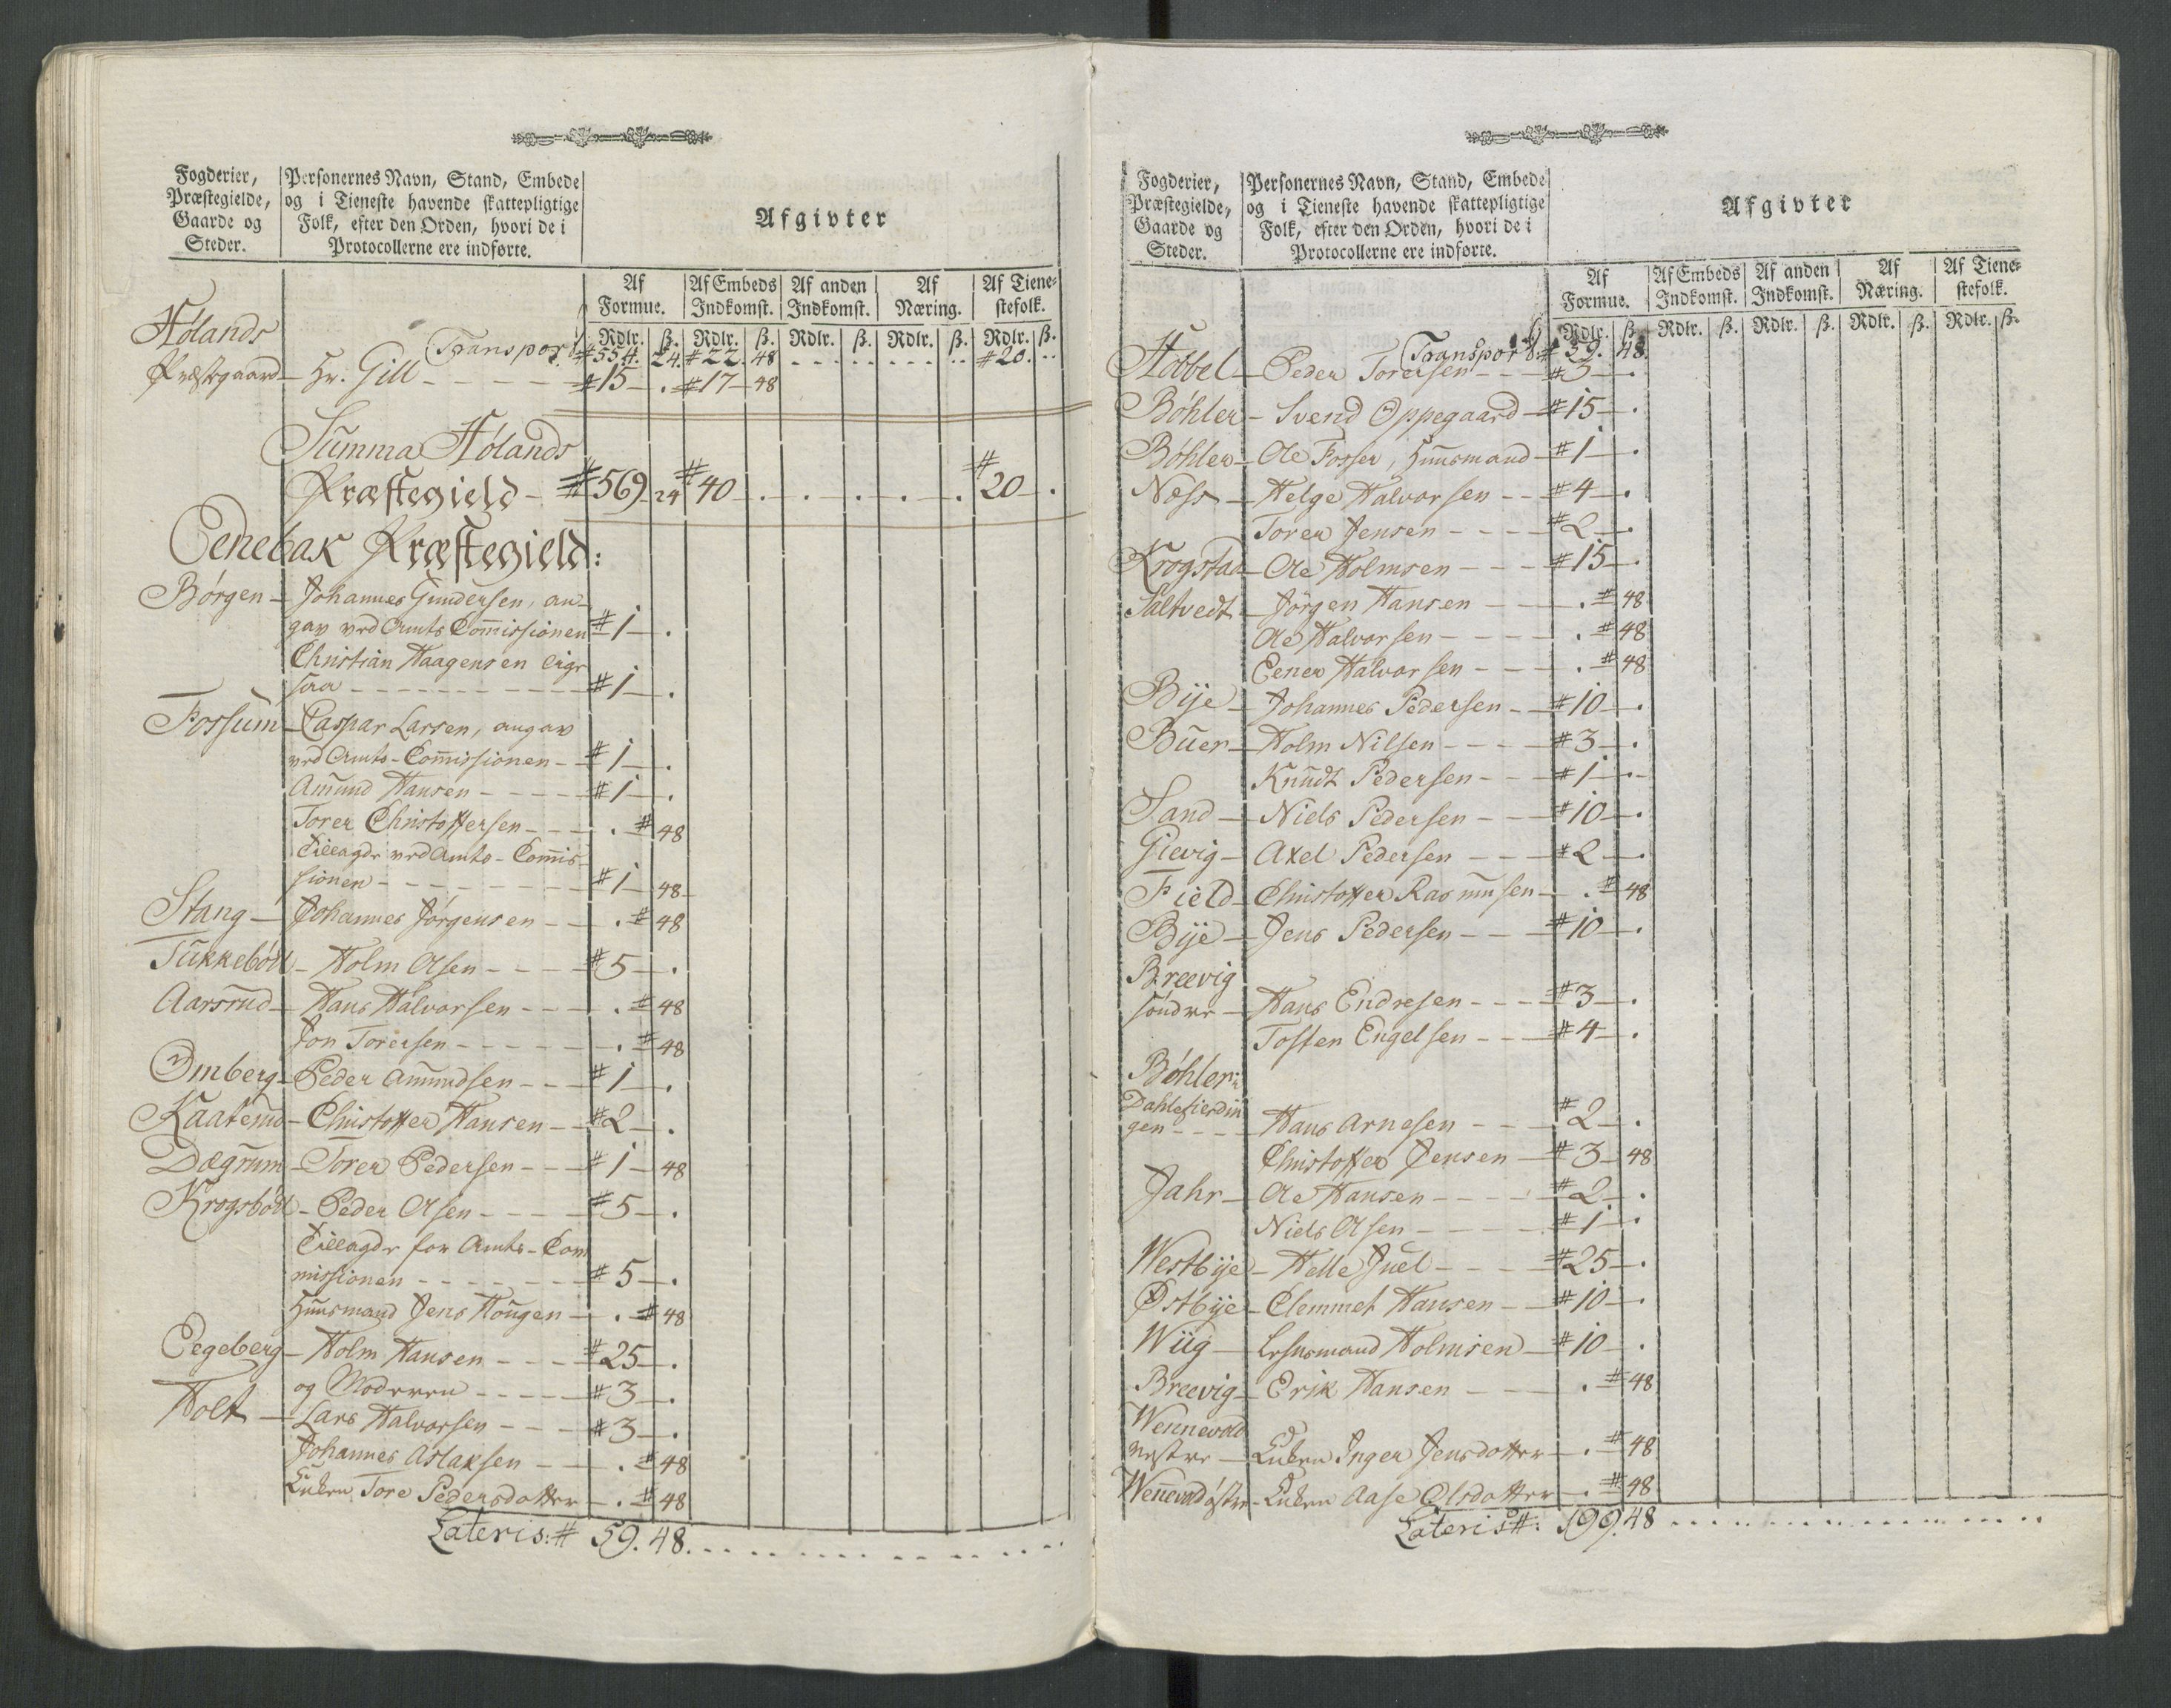 Fogderier,
Præstegielde,
Gaarde og
Steder.
Personernes Navn, Stand, Embede
og i Tieneste havende skattepligtige
Folk, efter den Orden, hvori de i
Protocollerne ere indførte.
Afgivter
Af Formue. Af Embeds Indkomst. Af anden Indkomst. Af Næring. Af Tienestefolk.
Rdlr. ß. Rdlr. ß. Rdlr. ß. Rdlr. ß. Rdlr. ß.
Hølands Transport # 554. 24. # 22. 48 # 20.
Præstegaard - Hr. Gill - # 15 - . # 17 - 48
Summa Hølands
Præstegield - # 569. 24 # 40 - . # 20 - .
Eenebak Præstegield:
Børgen - Johannes Gundersen, an-
gav ved Amts Com̅issionen # 1 - .
Christian Haagensen lige
saa - # 1 - .
Fossum - Caspar Larsen, angav
ved Amts-Com̅issionen - # 1 - .
Amund Hansen - # 1 - .
Torer Christoffersen - . # 48
Tillagde ved Amts-Com̅is-
sionen - # 1 - 48
Stang - Johannes Jørgensen - . # 48
Tukkebøll - Holm Olsen - # 5 - .
Aarsrud - Hans Halvorsen - . # 48
Jon Torersen - . # 48
Omberg - Peder Amundsen - # 1 - .
Kaaterud - Christoffer Hansen - # 2 - .
Dægrum - Torer Pedersen - # 1 - 48
Krogsbøll - Peder Olsen - # 5 - .
Tillagde for Amts-Com
missionen - # 5 - .
Huusmand Jens Hougen - . # 48
Eegeberg - Holm Hansen - # 25 - .
og Moderen - # 3 - .
Holt - Lars Halvorsen - # 3 - .
Johannes Aslaksen - . # 48
Enken Tore Pedersdotter - . # 48
Lateris: # 59. 48.
Fogderier,
Præstegielde,
Gaarde og
Steder.
Personernes Navn, Stand, Embede
og i Tieneste havende skattepligtige
Folk, efter den Orden, hvori de i
Protocollerne ere indførte.
Afgivter
Af Formue. Af Embeds Indkomst. Af anden Indkomst. Af Næring. Af Tienestefolk.
Rdlr. ß. Rdlr. ß. Rdlr. ß. Rdlr. ß. Rdlr. ß.
Transport # 59. 48.
Høbel - Peder Torersen - # 3 - .
Bøhler - Svend Oppegaard - # 15 - .
Bøhler - Ole Fosser, Huusmand - # 1 - .
Næss - Helge Halvorsen - # 4 - .
Torer Jensen - # 2 - .
Krogstad - Ole Holmsen - # 15 - .
Saltvedt - Jørgen Hansen - . # 48
Ole Halvorsen - . # 48
Eener Halvorsen - . # 48
Bije - Johannes Pedersen - # 10 - .
Buer - Holm Nilsen - # 3 - .
Knudt Pedersen - # 1 - .
Sand - Niels Pedersen - # 10 - .
Gievig - Axel Pedersen - # 2 - .
Field - Christoffer Rasmusen - . # 48
Bije - Jens Pedersen - # 10 - .
Breevig
søndre - Hans Endresen - # 3 - .
Tosten Engelsen - # 4 - .
Bøhler i
Dahlefierdin
gen - Hans Arnesen - # 2 - .
Christoffer Jensen - # 3 - 48
Jahr - Ole Hansen - # 2 - .
Niels Olsen - # 1 - .
Westbije - Helle Juel - # 25 - .
Østbije - Clemmet Hansen - # 10 - .
Wiig - Lehnsmand Holmsen - # 10 - .
Breevig - Erik Hansen - . # 48
Wennevold
vestre - Enken Inger Jensdotter - . # 48
Wen̅evold østre - Enken Aase Olsdotter - . # 48
Lateris #: 199. 48